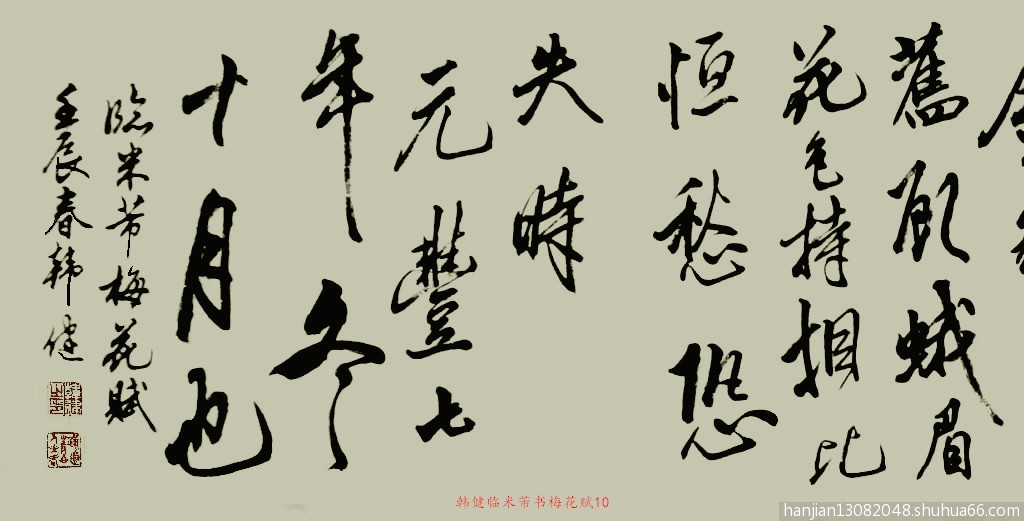 舊顧蛾眉
花色持相比
恒愁恐
失時
元豐七
年冬
十月也
臨米芾梅花賦
壬辰春韩健
韩健临米芾书梅花赋10
hanjian13082048.shuhua66.com